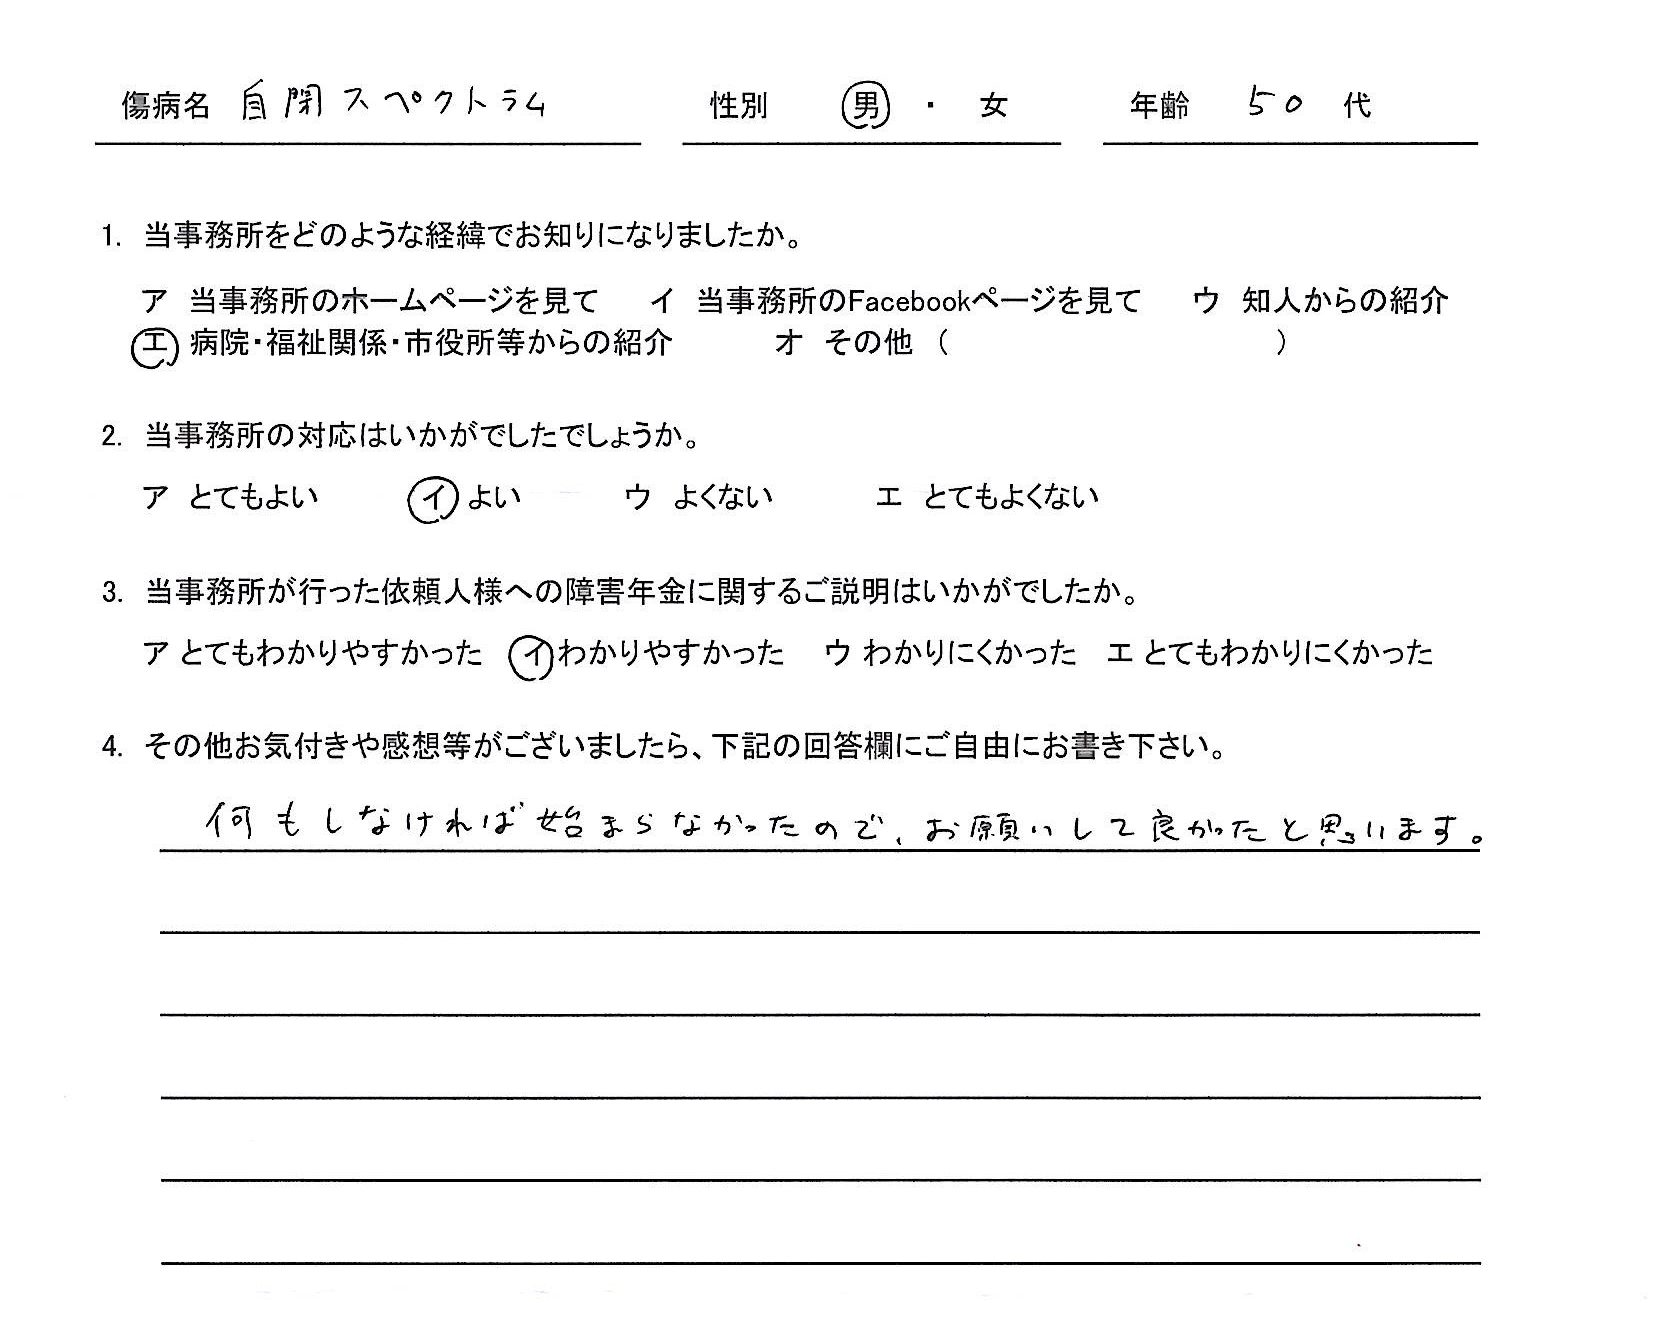 傷病名 自閉スペクトラム 性別 男 ・ 女 年齢 50 代
1. 当事務所をどのような経緯でお知りになりましたか。
ア 当事務所のホームページを見て イ 当事務所のFacebookページを見て ウ 知人からの紹介
エ 病院・福祉関係・市役所等からの紹介 オ その他 ( )
2. 当事務所の対応はいかがでしたでしょうか。
ア とてもよい イ よい ウ よくない エ とてもよくない
3. 当事務所が行った依頼人様への障害年金に関するご説明はいかがでしたか。
ア とてもわかりやすかった イ わかりやすかった ウ わかりにくかった エ とてもわかりにくかった
4. その他お気付きや感想等がございましたら、下記の回答欄にご自由にお書き下さい。
何もしなければ始まらなかったので、お願いして良かったと思います。